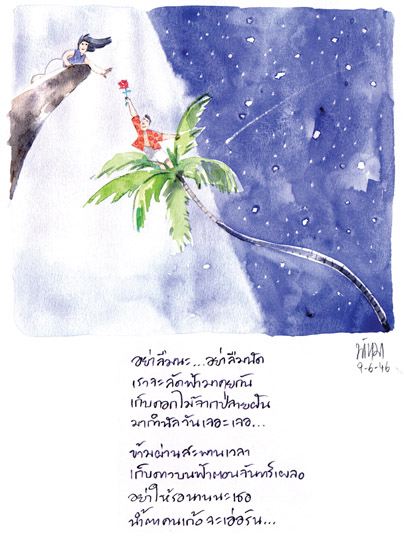 อย่าลืมนะ...อย่าลืมนัด
เราจะลัดฟ้ามาคุยกัน
เก็บดอกไม้จากปลายฝัน
มากำนัลวันเจอะเจอ...
ข้ามผ่านสะพานเวลา
เก็บดาวบนฟ้าตอนจันทร์เผลอ
อย่าให้รอนานนะเธอ
น้ำตาคนเก้อจะเอ่อริน...
9-6-46